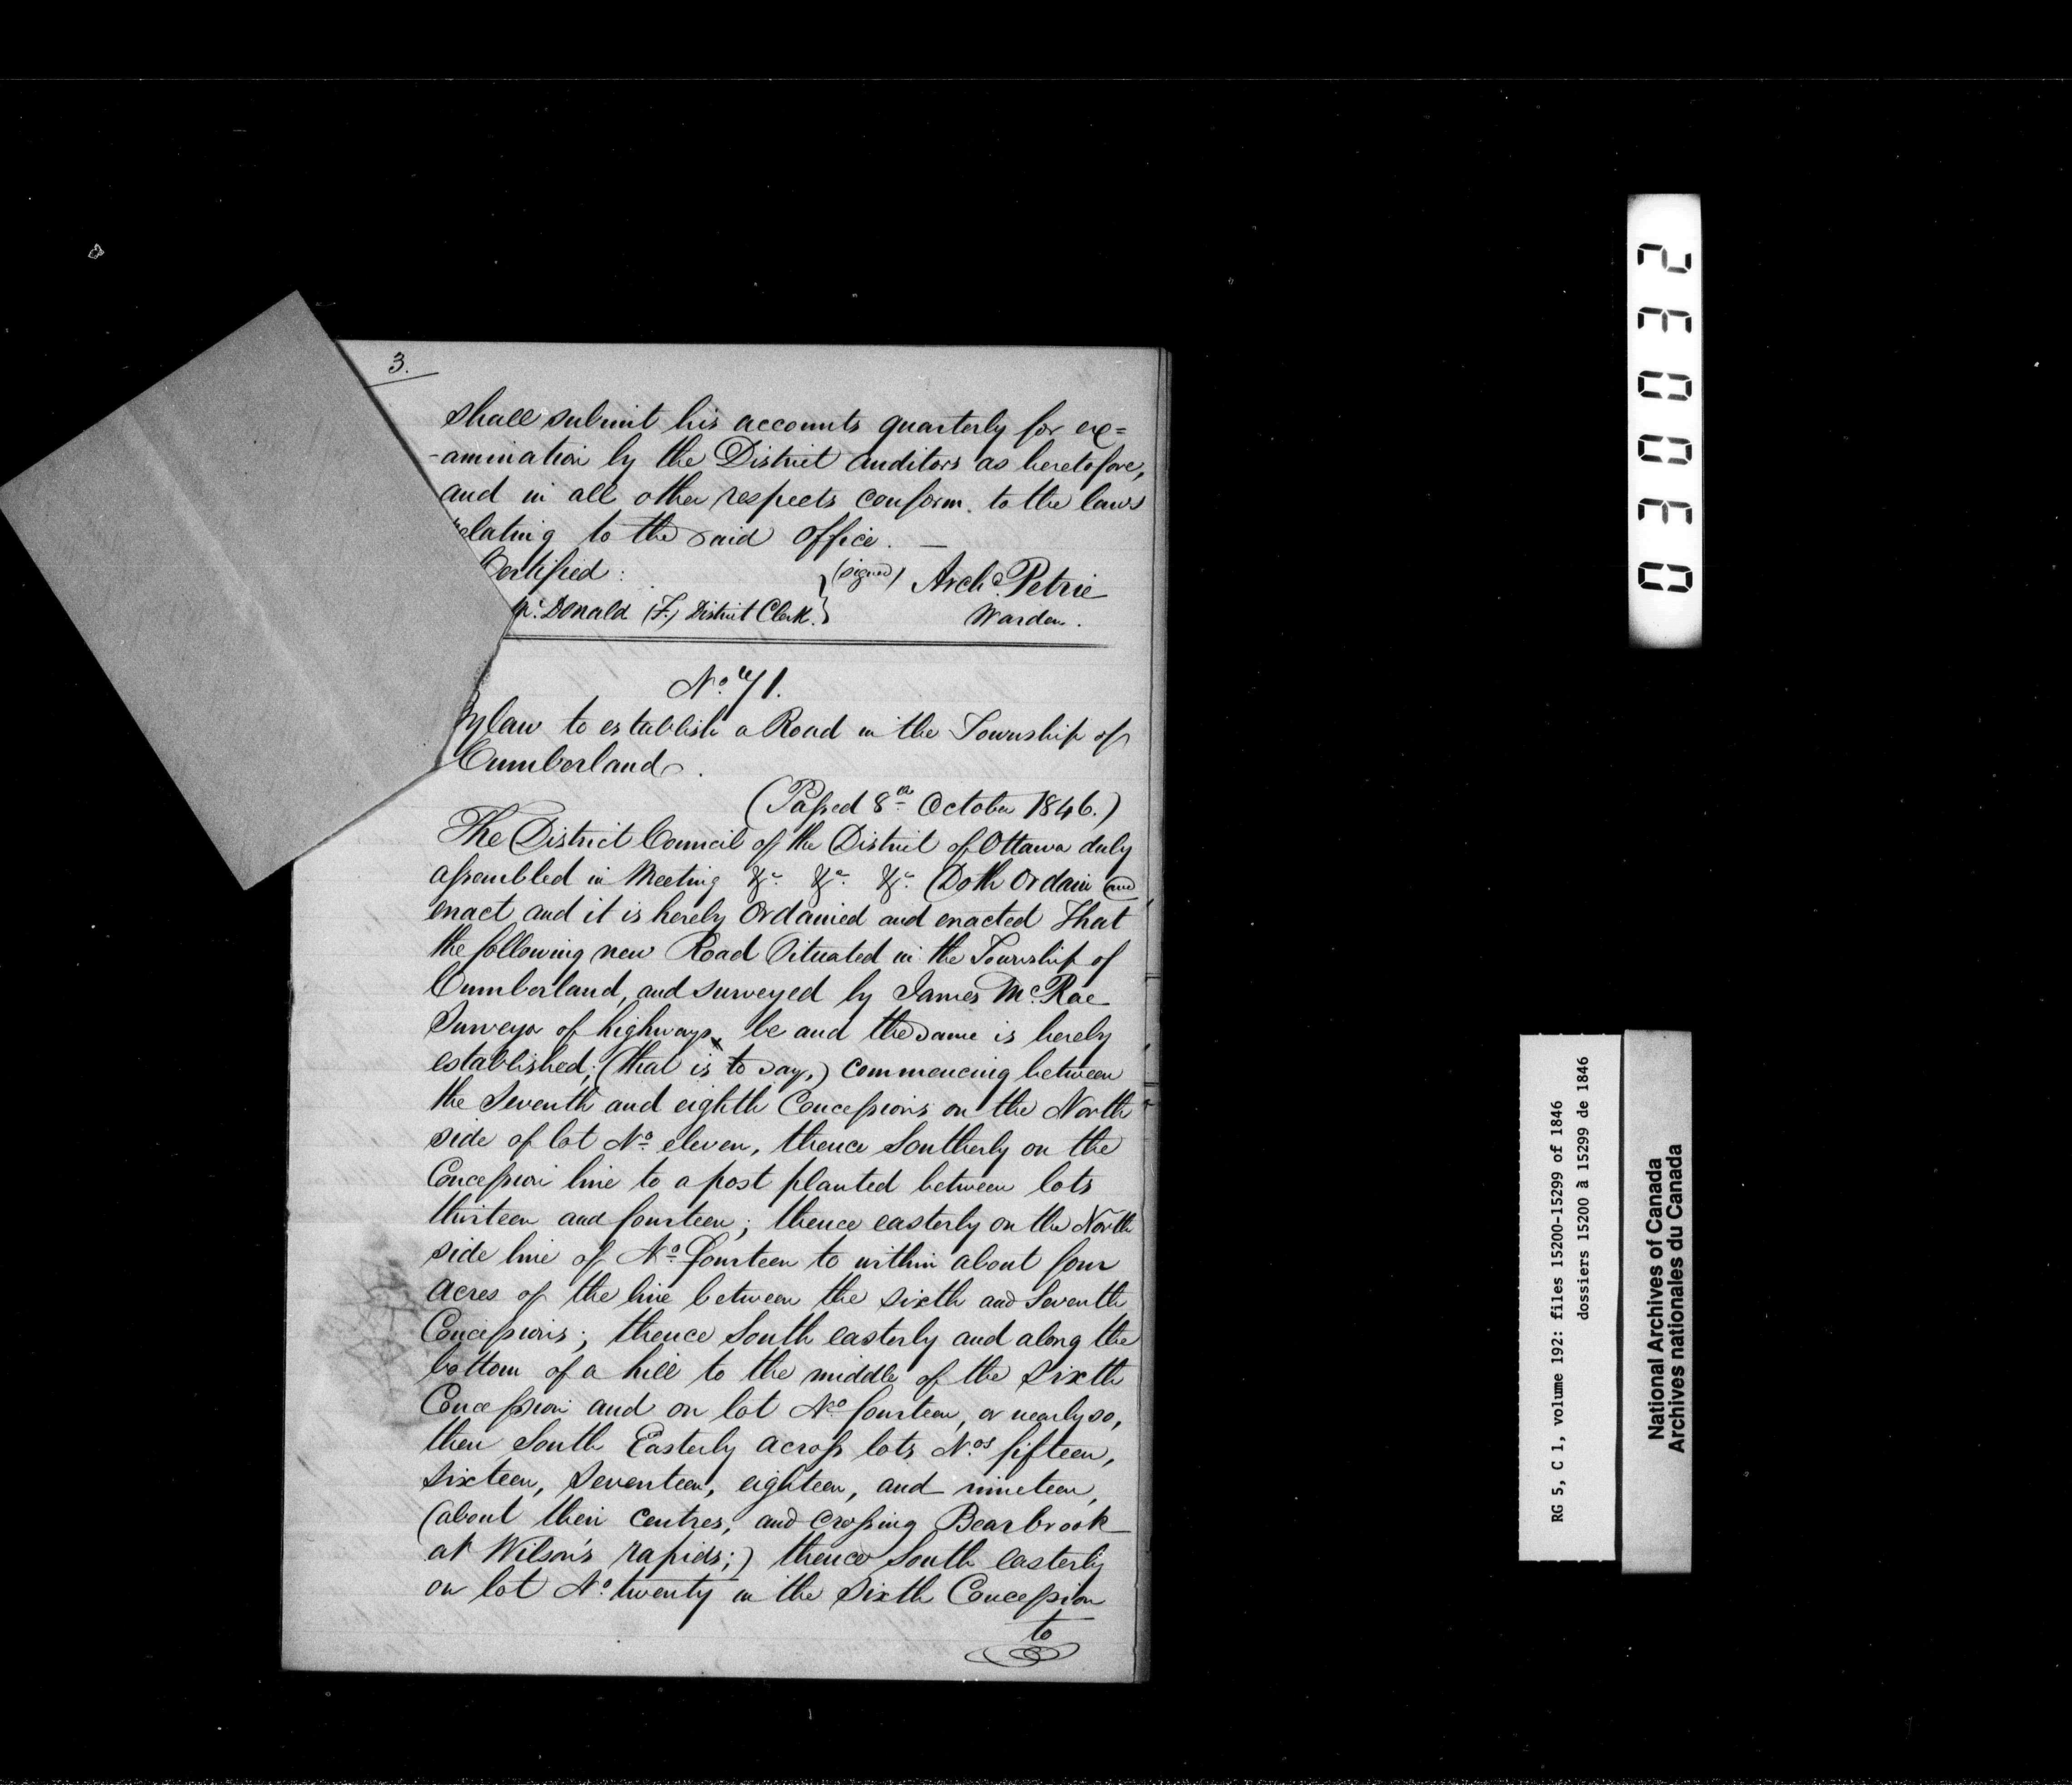 3.
shall submit his accounts quarterly for ex=
-amination by the District Auditors as heretofore,
and in all other respects conform to the laws
relating to the said Office. —
Certified:
(signed) Archd. Petrie
Mc.Donald (F.) District Clerk.
Warden.
No. 71.
Bylaw to establish a Road in the Township of
Cumberland.
(Passed 8th October 1846.)
The District Council of the District of Ottawa duly
assembled in Meeting &c. &c. &c. Doth Ordain and
enact and it is hereby Ordained and enacted That
the following new Road Situated in the Township of
Cumberland, and surveyed by James McRae
Surveyor of highways, be and the same is hereby
established; (that is to say,) commencing between
the Seventh and eighth Concessions on the North
side of lot No. eleven, thence Southerly on the
Concession line to a post planted between lots
thirteen and fourteen; thence easterly on the North
side line of No. fourteen to within about four
acres of the line between the sixth and Seventh
Concessions; thence South easterly and along the
bottom of a hill to the middle of the Sixth
Concession and on lot No. fourteen, or nearly so,
then South Easterly across lots Nos. fifteen,
sixteen, seventeen, eighteen, and nineteen,
(about their centres, and crossing Bearbrook
at Wilson's rapids;) thence South easterly
on lot No. twenty in the Sixth Concession
to
030032
RG 5, C 1, volume 192: files 15200-15299 of 1846
dossiers 15200 à 15299 de 1846
National Archives of Canada
Archives nationales du Canada